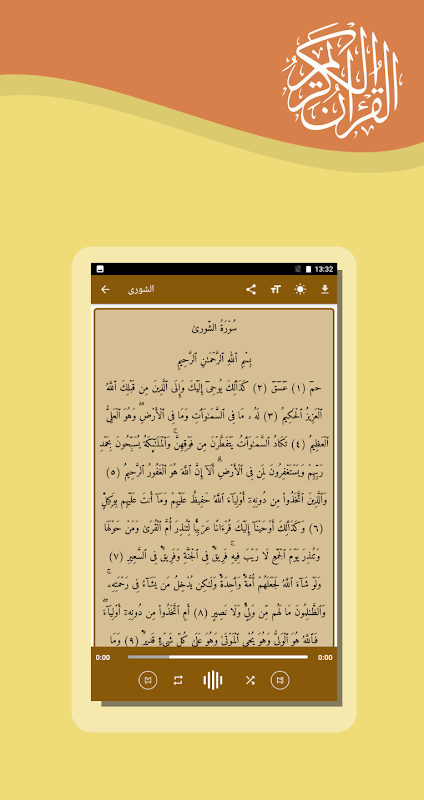 القرآن الكريم
13:32
الشورى
سُورَةُ الشُّورىٰ
بِسْمِ ٱللَّهِ ٱلرَّحْمَٰنِ ٱلرَّحِيمِ
حمٓ (١) عٓسٓقٓ (٢) كَذَٰلِكَ يُوحِىٓ إِلَيْكَ وَإِلَى ٱلَّذِينَ مِن قَبْلِكَ ٱللَّهُ
ٱلْعَزِيزُ ٱلْحَكِيمُ (٣) لَهُۥ مَا فِى ٱلسَّمَٰوَٰتِ وَمَا فِى ٱلْأَرْضِ ۖ وَهُوَ ٱلْعَلِىُّ
ٱلْعَظِيمُ (٤) تَكَادُ ٱلسَّمَٰوَٰتُ يَتَفَطَّرْنَ مِن فَوْقِهِنَّ ۚ وَٱلْمَلَٰٓئِكَةُ يُسَبِّحُونَ بِحَمْدِ
رَبِّهِمْ وَيَسْتَغْفِرُونَ لِمَن فِى ٱلْأَرْضِ ۗ أَلَآ إِنَّ ٱللَّهَ هُوَ ٱلْغَفُورُ ٱلرَّحِيمُ (٥)
وَٱلَّذِينَ ٱتَّخَذُوا۟ مِن دُونِهِۦٓ أَوْلِيَآءَ ٱللَّهُ حَفِيظٌ عَلَيْهِمْ وَمَآ أَنتَ عَلَيْهِم بِوَكِيلٍ
(٦) وَكَذَٰلِكَ أَوْحَيْنَآ إِلَيْكَ قُرْءَانًا عَرَبِيًّا لِّتُنذِرَ أُمَّ ٱلْقُرَىٰ وَمَنْ حَوْلَهَا
وَتُنذِرَ يَوْمَ ٱلْجَمْعِ لَا رَيْبَ فِيهِ ۚ فَرِيقٌ فِى ٱلْجَنَّةِ وَفَرِيقٌ فِى ٱلسَّعِيرِ (٧)
وَلَوْ شَآءَ ٱللَّهُ لَجَعَلَهُمْ أُمَّةً وَٰحِدَةً وَلَٰكِن يُدْخِلُ مَن يَشَآءُ فِى رَحْمَتِهِۦ ۚ
وَٱلظَّٰلِمُونَ مَا لَهُم مِّن وَلِىٍّ وَلَا نَصِيرٍ (٨) أَمِ ٱتَّخَذُوا۟ مِن دُونِهِۦٓ أَوْلِيَآءَ ۖ
فَٱللَّهُ هُوَ ٱلْوَلِىُّ وَهُوَ يُحْىِ ٱلْمَوْتَىٰ وَهُوَ عَلَىٰ كُلِّ شَىْءٍ قَدِيرٌ (٩) وَمَا
0:00
0:00